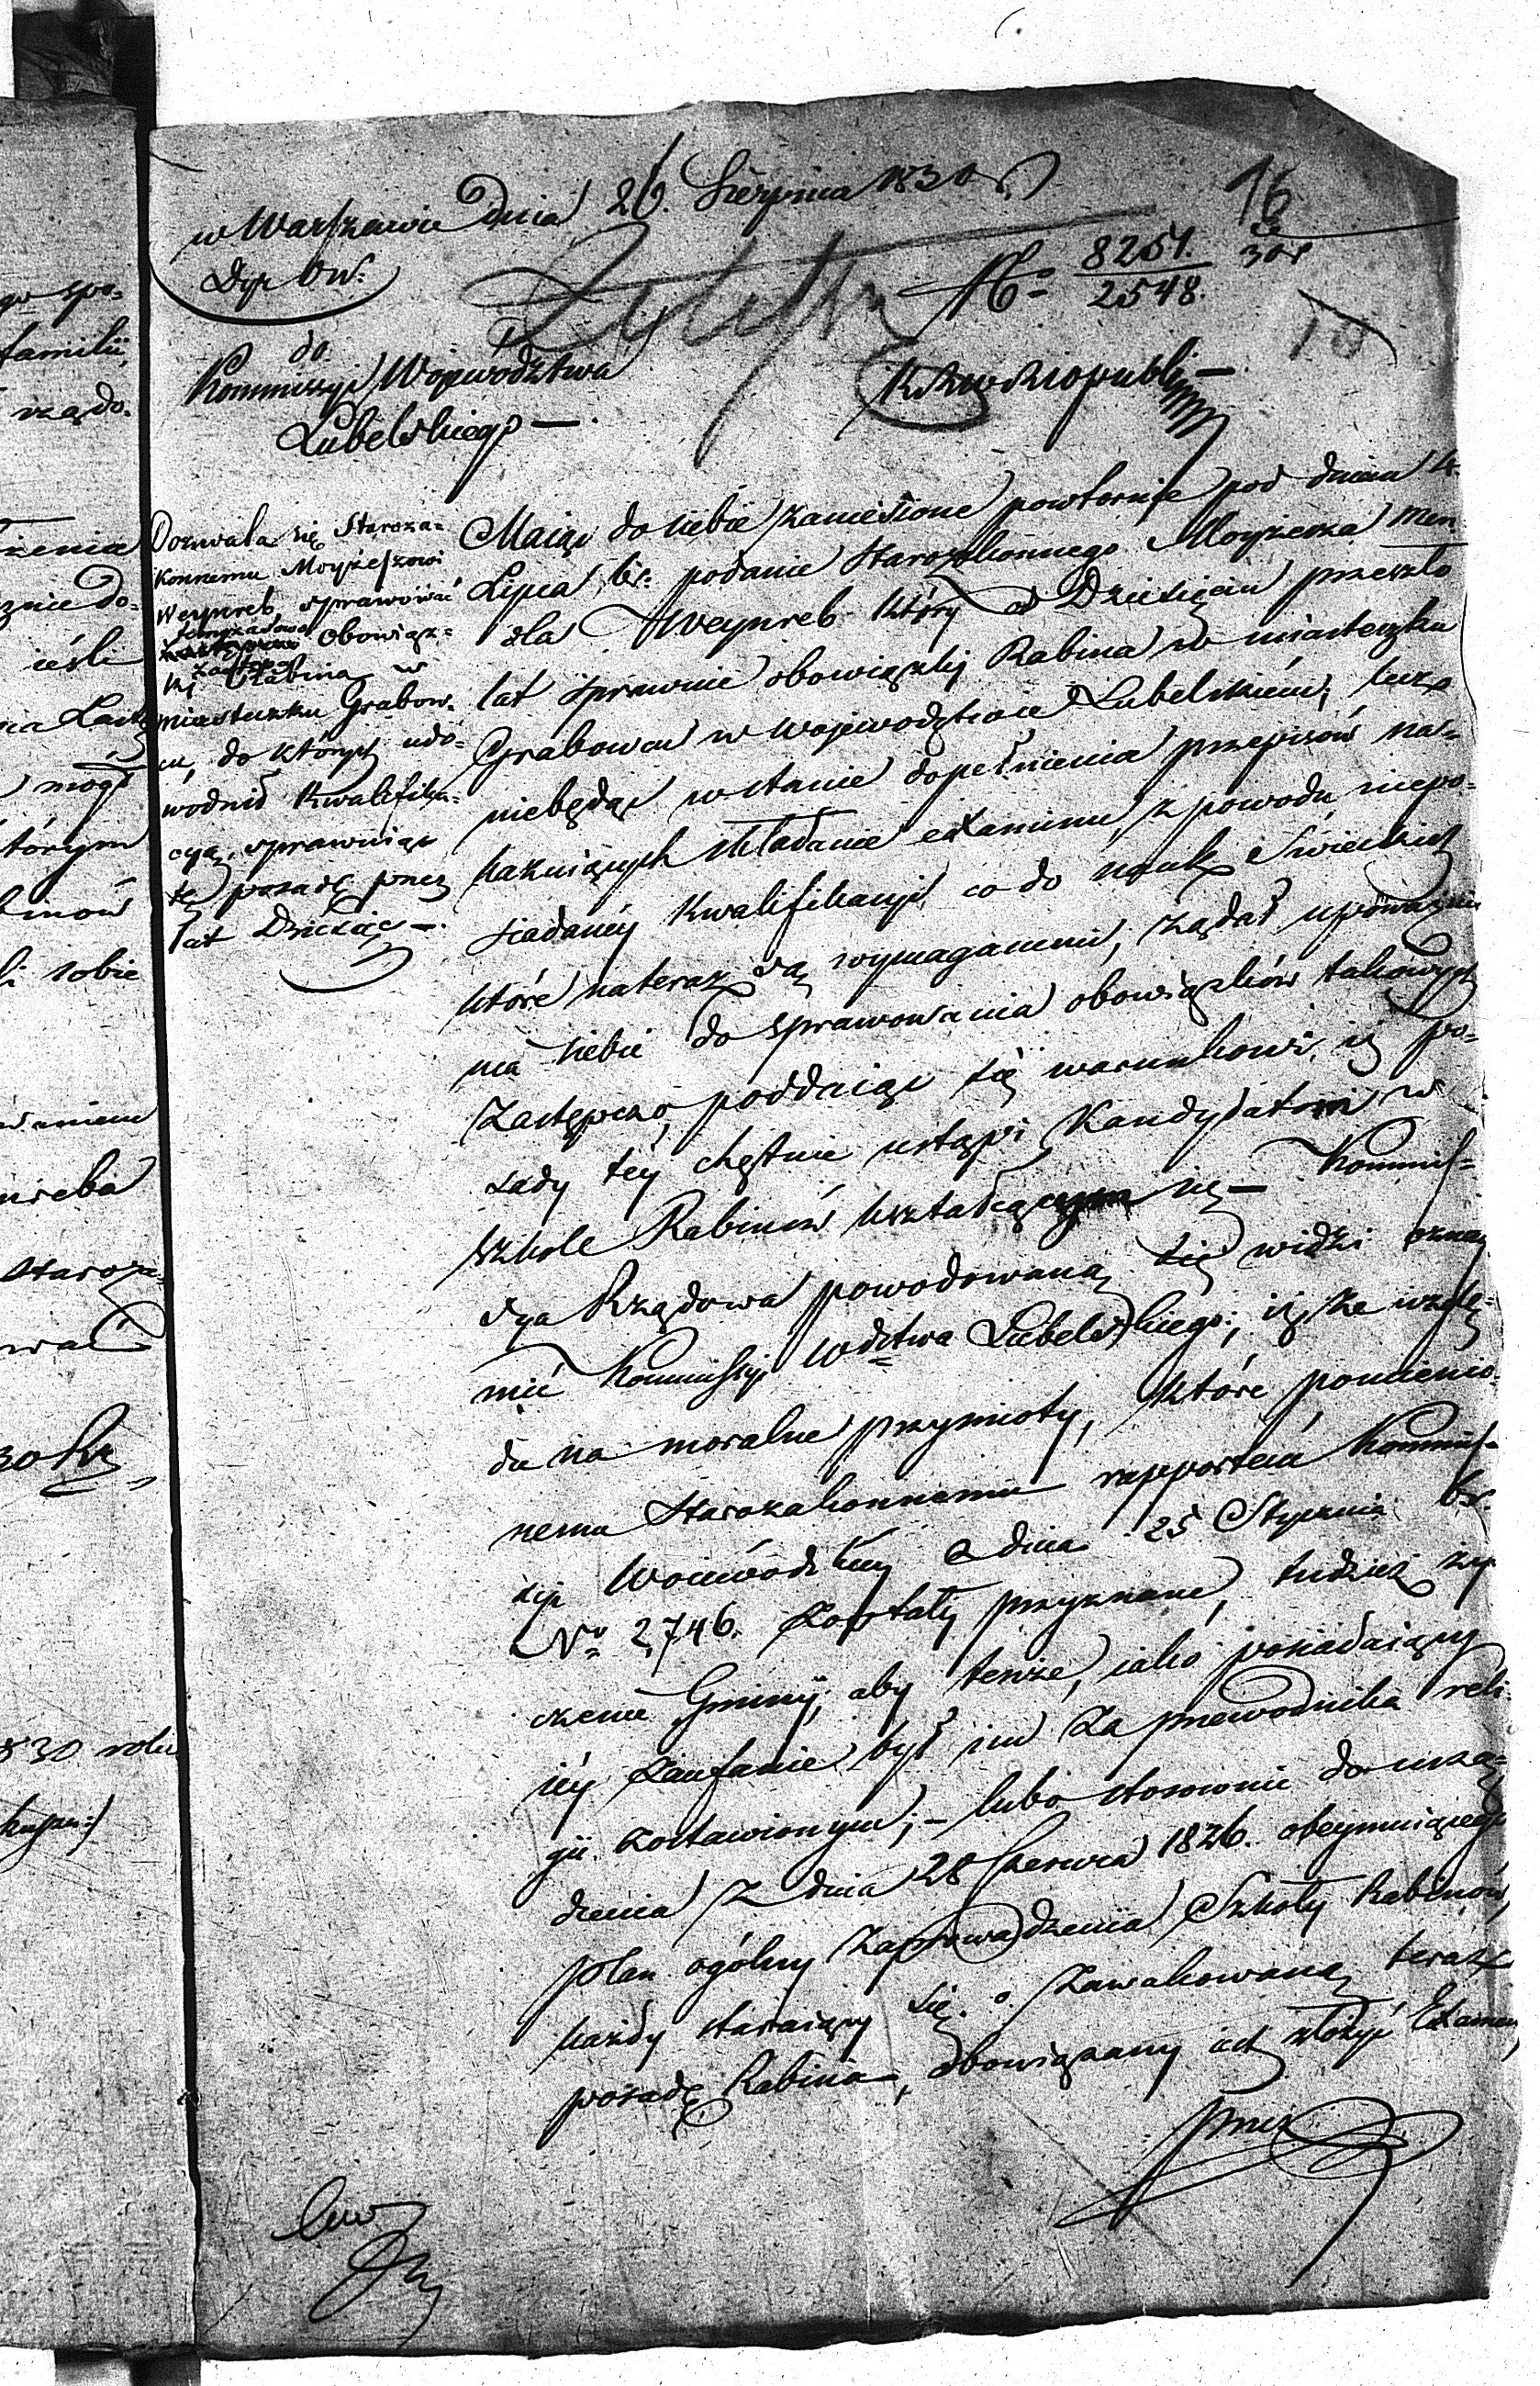 go spo=
familii,
rządo=
znie do=
ieśli
mógł
którym
binów
li sobie
nreba
Staroza=
wać
830 roku
w Warszawie Dnia 26. Sierpnia 1830 r.
Dyr. OW.
16
No 8251./2548.
30r
do
Kommissyi Województwa
Lubelskiego —.
Dozwala się Staroza=
konnemu Moyżeszowi
Weynreb, sprawować
tymczasowo obowiąz=
zastępcy
ki Rabina w
miasteczku Grabow=
cu, do których udo=
wodnił kwalifika=
cyą, sprawuiąc
tę posadę przez
lat Dziesięć —.
Maiąc do siebie zaniesione powtórnie pod dniem 4
Lipca b.r. podanie Starozakonnego Moyżesza Men=
dla Weynreb który od Dziesięciu przeszło
lat sprawuie obowiązki Rabina w miasteczku
Grabowcu w Województwie Lubelskiém; lecz
niebędąc w stanie dopełnienia przepisów na=
kazuiących składanie examinu, z powodu niepo=
siadanéy kwalifikacyi co do nauk Świeckich
które nateraz są wymaganemi, żądał upoważnie
nia siebie do sprawowania obowiązków takowych
Zastępczo, poddaiąc się warunkowi, iż po=
sady téy chętnie ustąpi Kandydatowi w
szkole Rabinów kształcącym się — Kommis=
sya Rządowa powodowaną się widzi oznay
mić Kommissyi Wdztwa Lubelskiego; iż ze wzglę=
du na moralne przymioty, które pomienio=
nemu Starozakonnemu rapportem Kommis=
syi Woiewódzkiéy z dnia 25 Stycznia b.r.
No 2,746. zostały przyznane, tudzież ży=
czenie Gminy, aby tenże, iako posiadaiący
iéy zaufanie był im za przewodnika reli=
gii zostawionym; — lubo stosownie do urzą=
dzenia z dnia 28 Czerwca 1826. obeymuiącego
plan ogólny zaprowadzenia Szkoły Rabinów,
każdy staraiący się o zawakowaną teraz
posadę Rabina, obowiązany iest złożyć Examen,
przez